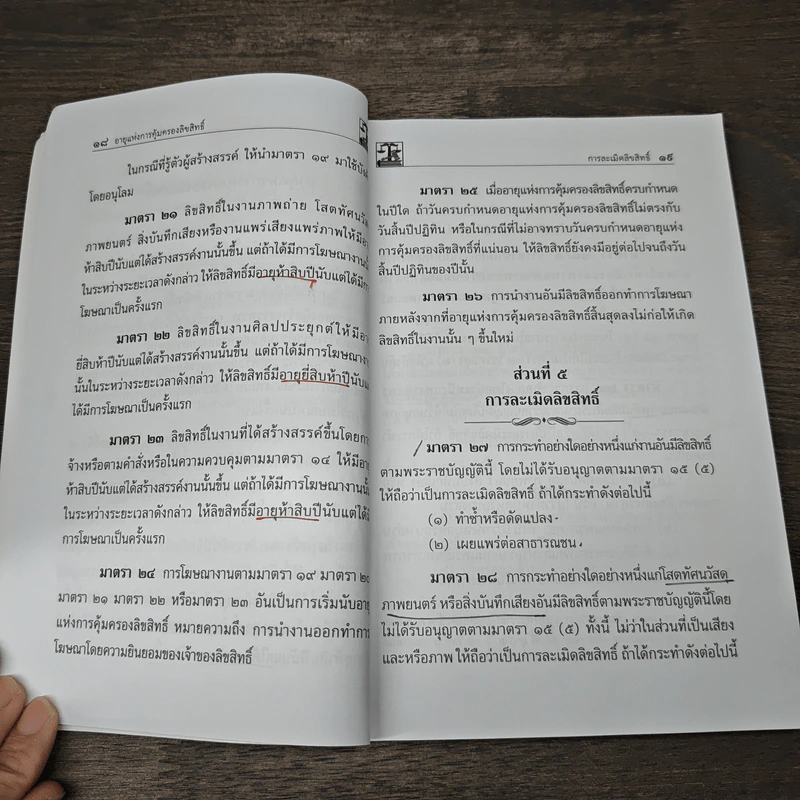 ๑๘ อายุแห่งการคุ้มครองลิขสิทธิ์
ในกรณีที่รู้ตัวผู้สร้างสรรค์ ให้นำมาตรา ๑๙ มาใช้บังคับ
โดยอนุโลม
มาตรา ๒๑ ลิขสิทธิ์ในงานภาพถ่าย โสตทัศนวัสดุ
ภาพยนตร์ สิ่งบันทึกเสียงหรืองานแพร่เสียงแพร่ภาพให้มีอายุ
ห้าสิบปีนับแต่ได้สร้างสรรค์งานนั้นขึ้น แต่ถ้าได้มีการโฆษณางานนั้น
ในระหว่างระยะเวลาดังกล่าว ให้ลิขสิทธิ์มีอายุห้าสิบปีนับแต่ได้มีการ
โฆษณาเป็นครั้งแรก
มาตรา ๒๒ ลิขสิทธิ์ในงานศิลปประยุกต์ให้มีอายุ
ยี่สิบห้าปีนับแต่ได้สร้างสรรค์งานนั้นขึ้น แต่ถ้าได้มีการโฆษณางาน
นั้นในระหว่างระยะเวลาดังกล่าว ให้ลิขสิทธิ์มีอายุยี่สิบห้าปีนับแต่
ได้มีการโฆษณาเป็นครั้งแรก
มาตรา ๒๓ ลิขสิทธิ์ในงานที่ได้สร้างสรรค์ขึ้นโดยการ
จ้างหรือตามคำสั่งหรือในความควบคุมตามมาตรา ๑๔ ให้มีอายุ
ห้าสิบปีนับแต่ได้สร้างสรรค์งานนั้นขึ้น แต่ถ้าได้มีการโฆษณางานนั้น
ในระหว่างระยะเวลาดังกล่าว ให้ลิขสิทธิ์มีอายุห้าสิบปีนับแต่ได้มี
การโฆษณาเป็นครั้งแรก
มาตรา ๒๔ การโฆษณางานตามมาตรา ๑๙ มาตรา ๒๐
มาตรา ๒๑ มาตรา ๒๒ หรือมาตรา ๒๓ อันเป็นการเริ่มนับอายุ
แห่งการคุ้มครองลิขสิทธิ์ หมายความถึง การนำงานออกทำการ
โฆษณาโดยความยินยอมของเจ้าของลิขสิทธิ์
การละเมิดลิขสิทธิ์ ๑๙
มาตรา ๒๕ เมื่ออายุแห่งการคุ้มครองลิขสิทธิ์ครบกำหนด
ในปีใด ถ้าวันครบกำหนดอายุแห่งการคุ้มครองลิขสิทธิ์ไม่ตรงกับ
วันสิ้นปีปฏิทิน หรือในกรณีที่ไม่อาจทราบวันครบกำหนดอายุแห่ง
การคุ้มครองลิขสิทธิ์ที่แน่นอน ให้ลิขสิทธิ์ยังคงมีอยู่ต่อไปจนถึงวัน
สิ้นปีปฏิทินของปีนั้น
มาตรา ๒๖ การนำงานอันมีลิขสิทธิ์ออกทำการโฆษณา
ภายหลังจากที่อายุแห่งการคุ้มครองลิขสิทธิ์สิ้นสุดลงไม่ก่อให้เกิด
ลิขสิทธิ์ในงานนั้น ๆ ขึ้นใหม่
ส่วนที่ ๕
การละเมิดลิขสิทธิ์
มาตรา ๒๗ การกระทำอย่างใดอย่างหนึ่งแก่งานอันมีลิขสิทธิ์
ตามพระราชบัญญัตินี้ โดยไม่ได้รับอนุญาตตามมาตรา ๑๕ (๕)
ให้ถือว่าเป็นการละเมิดลิขสิทธิ์ ถ้าได้กระทำดังต่อไปนี้
(๑) ทำซ้ำหรือดัดแปลง
(๒) เผยแพร่ต่อสาธารณชน
มาตรา ๒๘ การกระทำอย่างใดอย่างหนึ่งแก่โสตทัศนวัสดุ
ภาพยนตร์ หรือสิ่งบันทึกเสียงอันมีลิขสิทธิ์ตามพระราชบัญญัตินี้โดย
ไม่ได้รับอนุญาตตามมาตรา ๑๕ (๕) ทั้งนี้ ไม่ว่าในส่วนที่เป็นเสียง
และหรือภาพ ให้ถือว่าเป็นการละเมิดลิขสิทธิ์ ถ้าได้กระทำดังต่อไปนี้